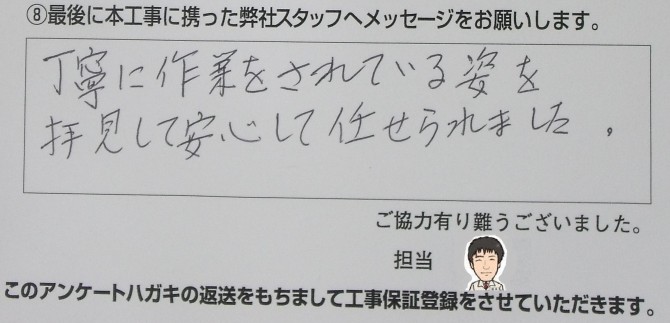 ⑧最後に本工事に携った弊社スタッフへメッセージをお願いします。
丁寧に作業をされている姿を
拝見して安心して任せられました。
ご協力有り難うございました。
担当
このアンケートハガキの返送をもちまして工事保証登録をさせていただきます。